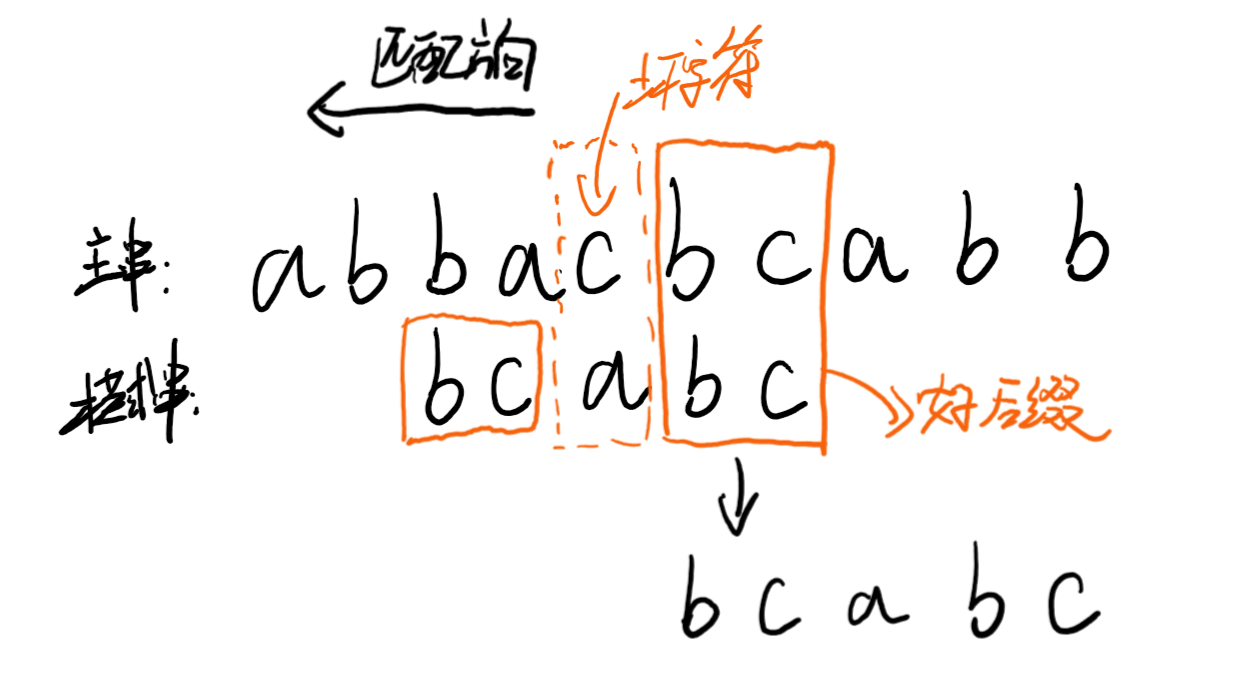 匹配方向
坏字符
主串: a b b a c b c a b b
模式串: b c a b c
好后缀
b c a b c